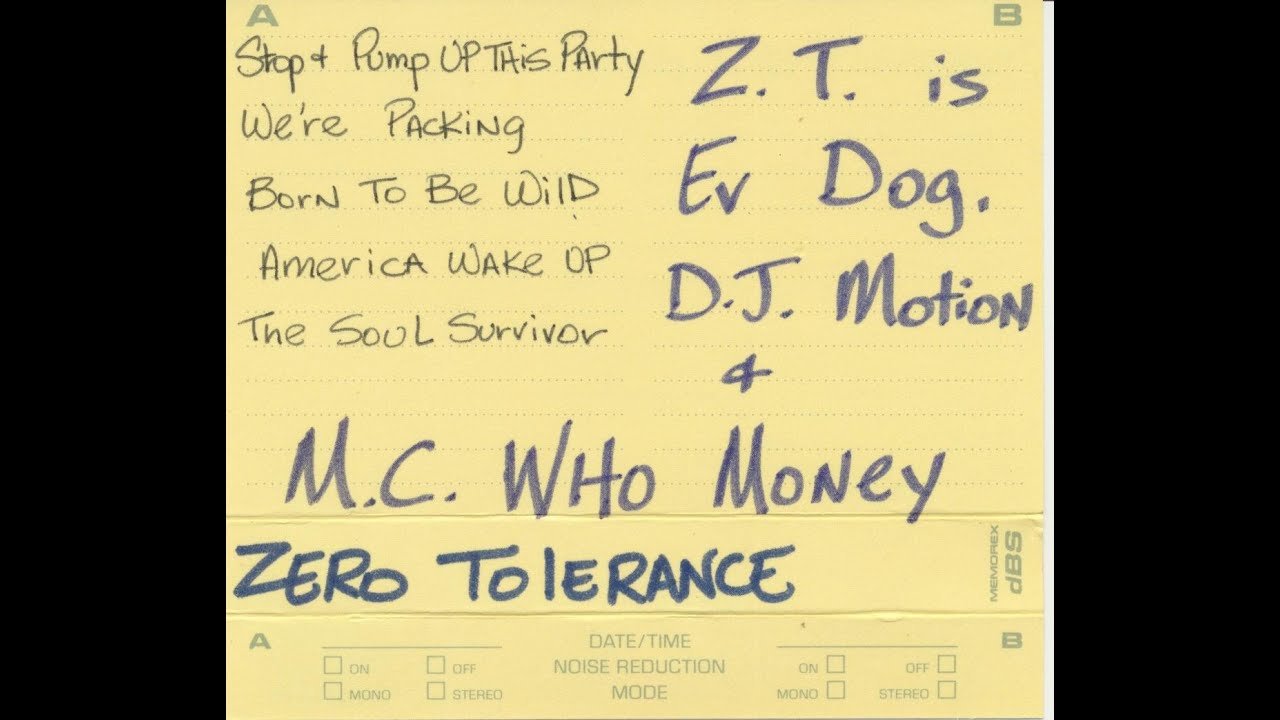 A
B
Stop & Pump UP THis PArty
We're PAckiNg
BorN To Be WilD
AmericA WAke UP
The SouL Survivor
Z. T. is
Ev Dog.
D.J. MotioN
&
M.C. WHo MoNey
ZERO TolERANCE
MEMOREX
dBS
A
B
DATE/TIME
ON OFF NOISE REDUCTION ON OFF
MONO STEREO MODE MONO STEREO